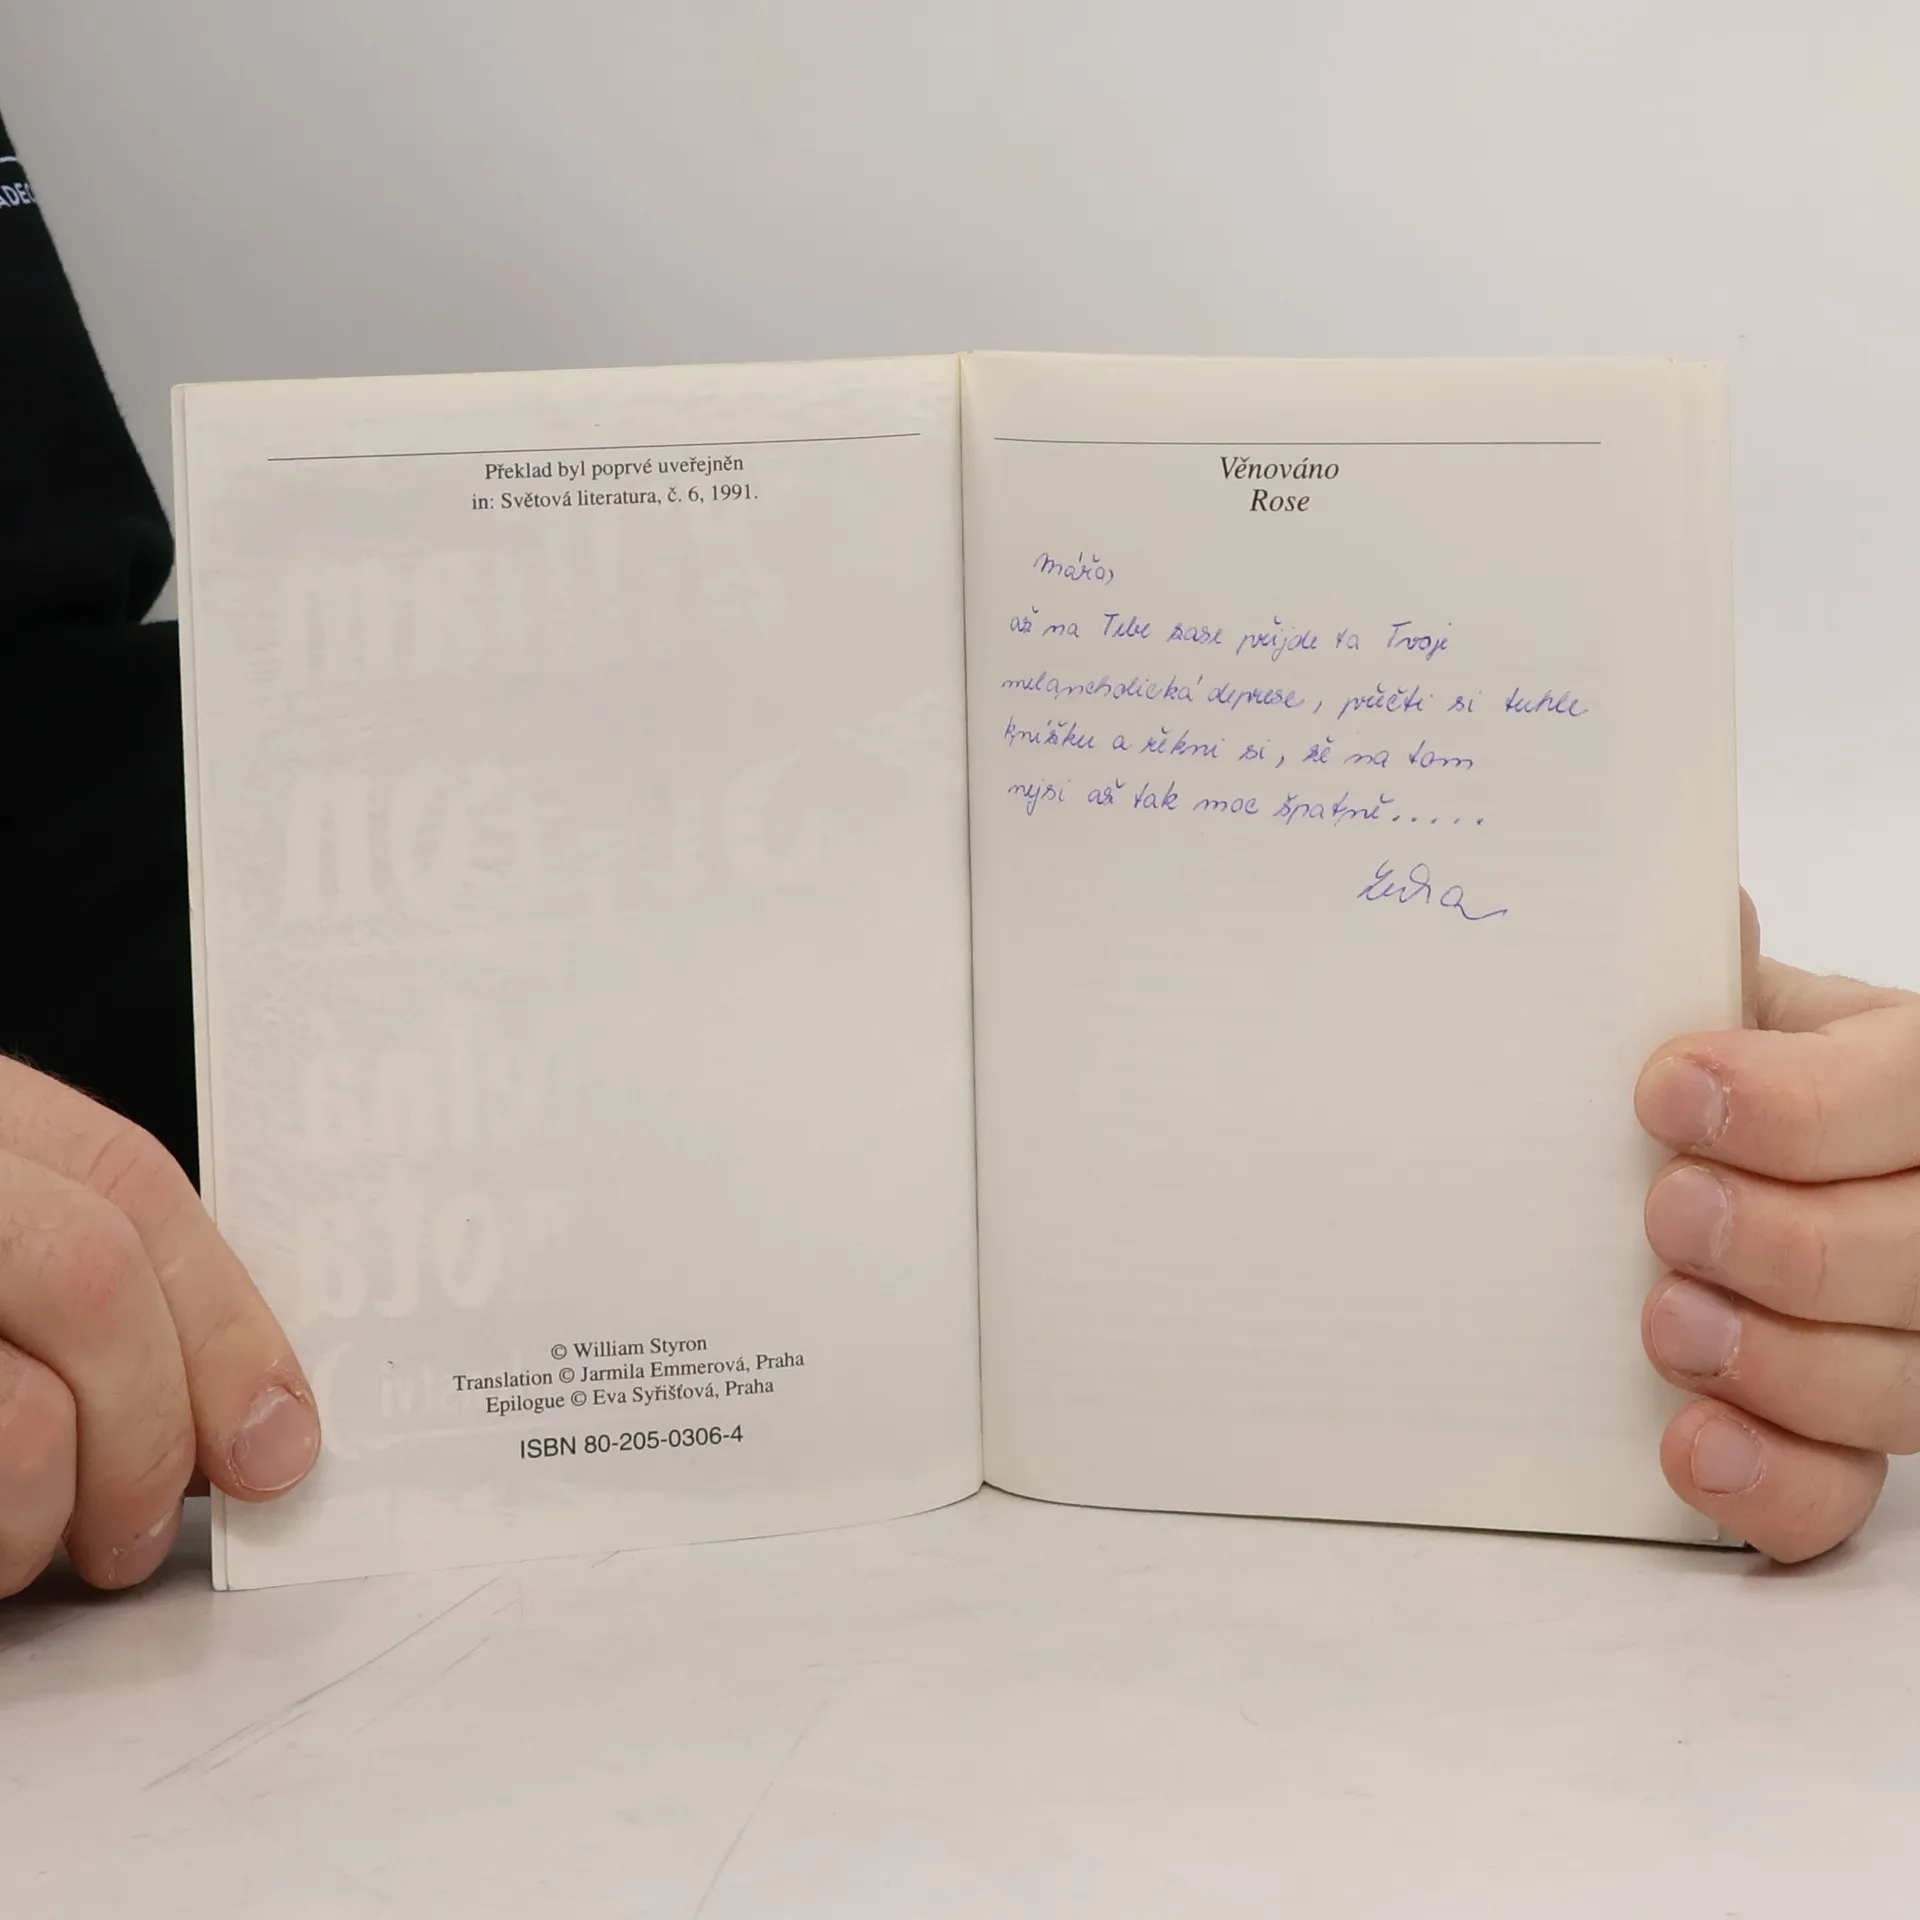 Překlad byl poprvé uveřejněn
in: Světová literatura, č. 6, 1991.
© William Styron
Translation © Jarmila Emmerová, Praha
Epilogue © Eva Syřišťová, Praha
ISBN 80-205-0306-4
Věnováno
Rose
Mářo,
až na Tebe zase přijde ta Tvoje
melancholická deprese, přečti si tuhle
knížku a řekni si, že na tom
nejsi až tak moc špatně.....